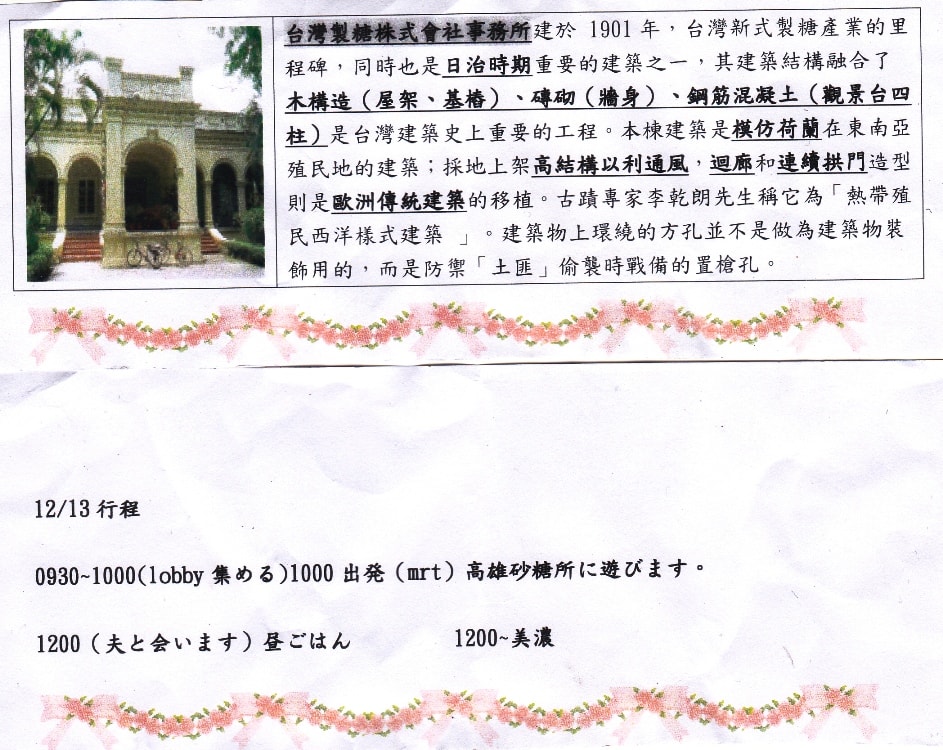 台灣製糖株式會社事務所建於 1901 年，台灣新式製糖產業的里
程碑，同時也是日治時期重要的建築之一，其建築結構融合了
木構造（屋架、基樁）、磚砌（牆身）、鋼筋混凝土（觀景台四
柱）是台灣建築史上重要的工程。本棟建築是模仿荷蘭在東南亞
殖民地的建築；採地上架高結構以利通風，迴廊和連續拱門造型
則是歐洲傳統建築的移植。古蹟專家李乾朗先生稱它為「熱帶殖
民西洋樣式建築 」。建築物上環繞的方孔並不是做為建築物裝
飾用的，而是防禦「土匪」偷襲時戰備的置槍孔。
12/13 行程
0930~1000(lobby 集める)1000 出発（mrt）高雄砂糖所に遊びます。
1200（夫と会います）昼ごはん 1200~美濃